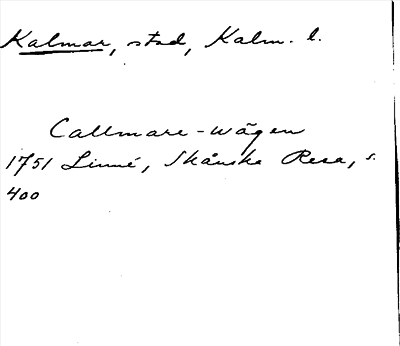 Kalmar, stad, Kalm. l.
Callmare-wägen
1751 Linné, Skånska Resa, s.
400